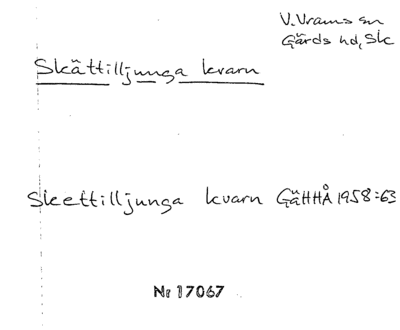 V. Vrams sn
Gärds hd, Sk
Skättilljunga kvarn
Skettilljunga kvarn GäHHÅ 1958:63
Nr 17067